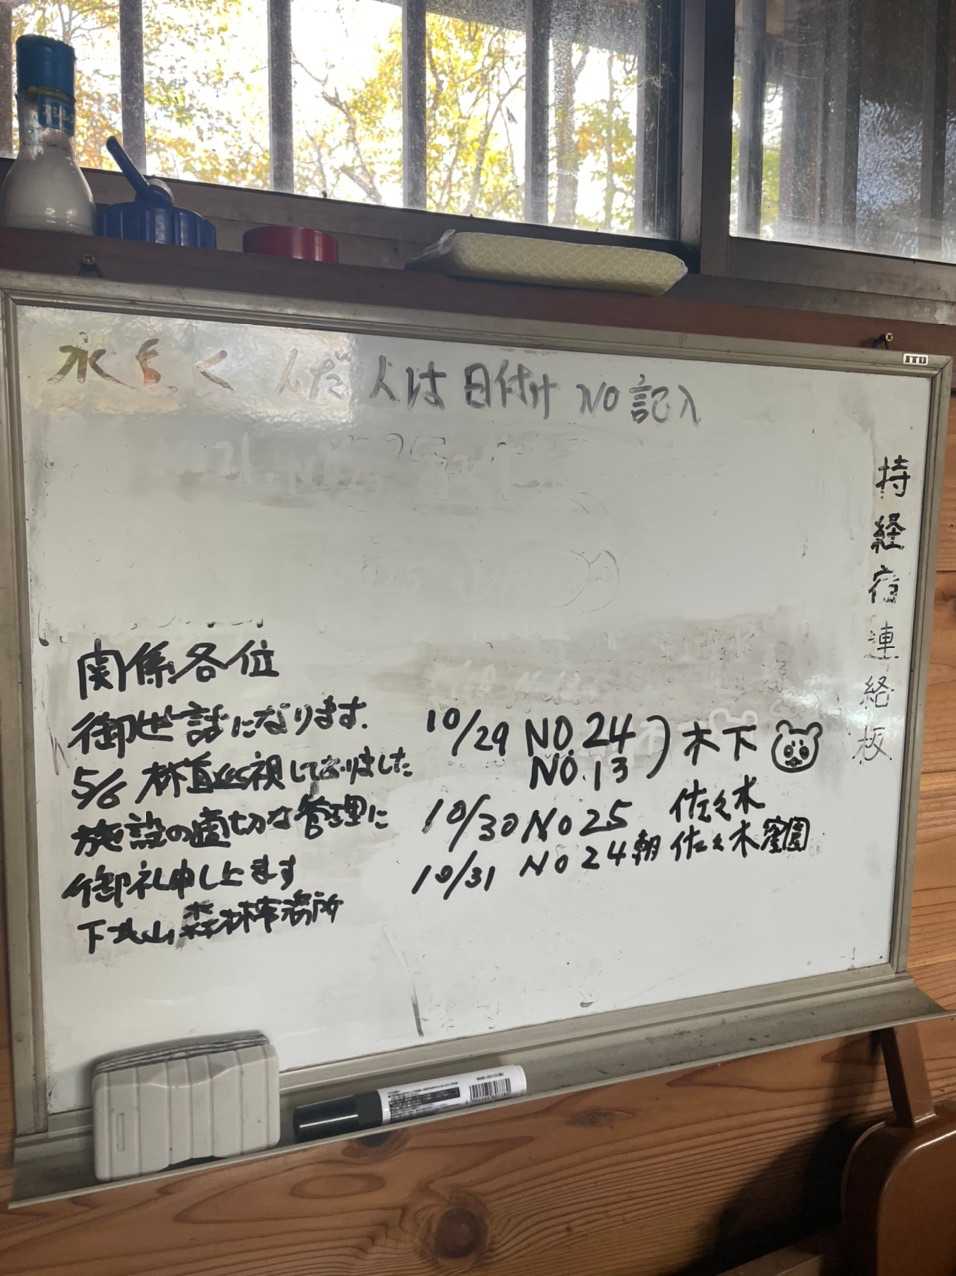 水をくんだ人は日付け NO記入
持経宿連絡板
関係各位
御世話になります.
5/6 林道巡視しておりました
施設の適切な管理に
御礼申し上ます
下北山森林事務所
10/29 NO.24
NO.13 ) 木下
10/30 NO25 佐々木
10/31 NO24朝 佐々木